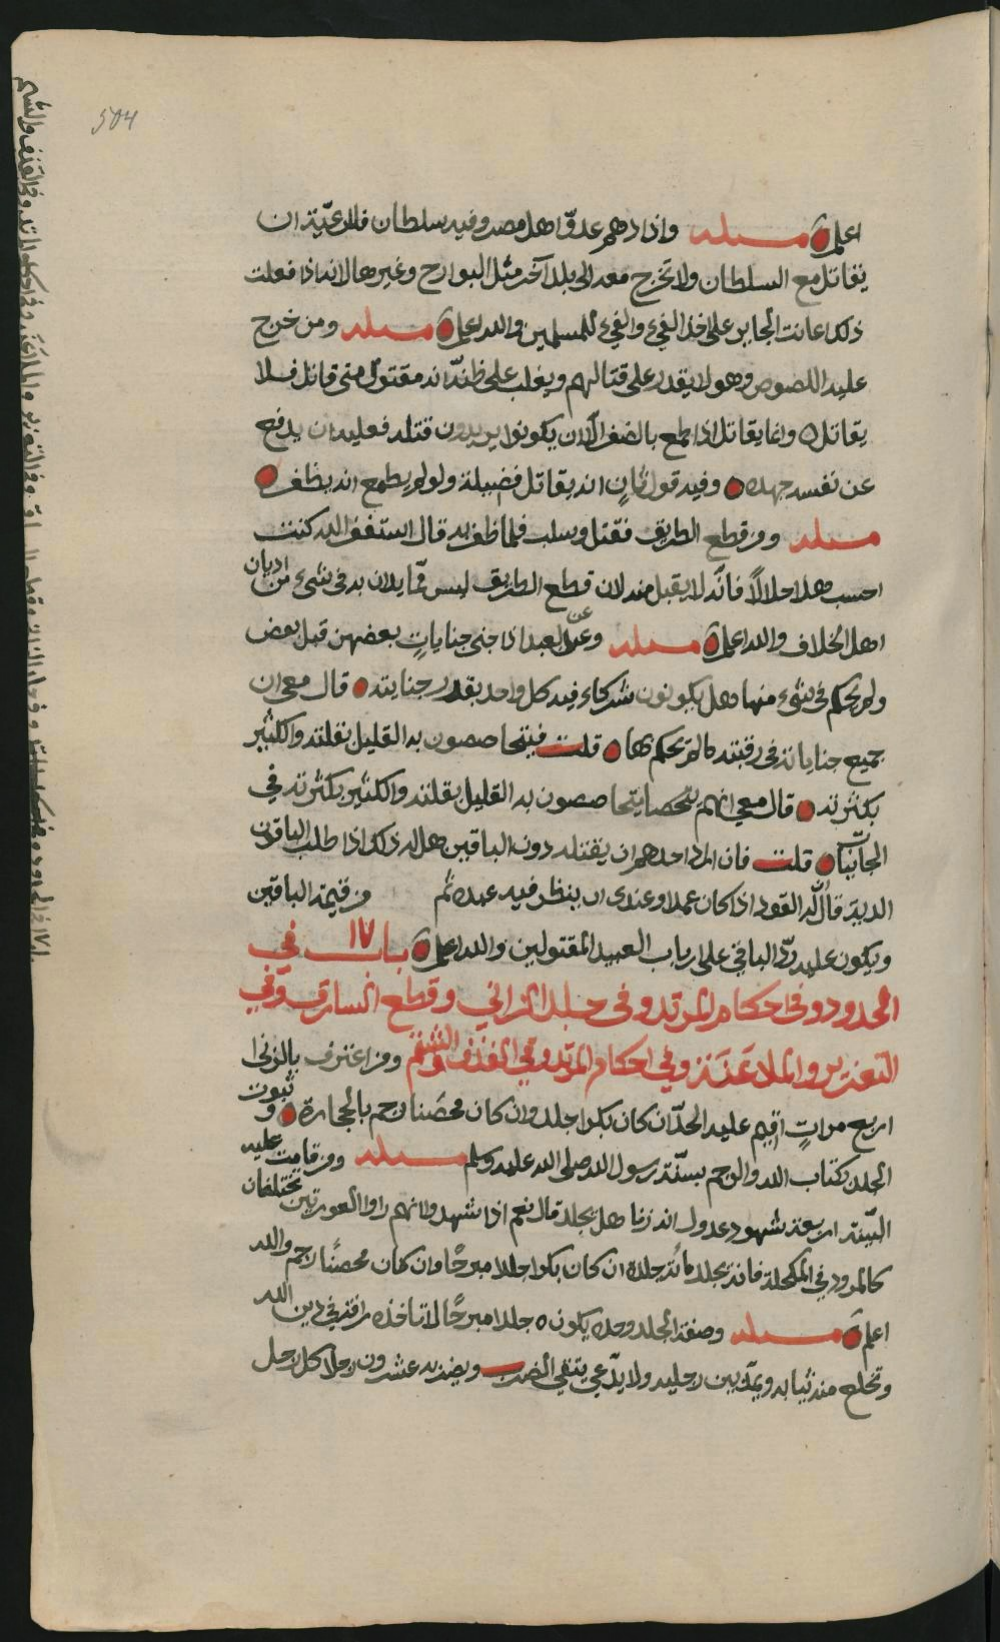 504
اعلم مسئلة واذا دهم عدوّ اهل مصر وفيه سلطان فللرعيّة ان
يقاتل مع السلطان ولا تخرج معه الى بلد آخر مثل البوارح وغيرها لانه اذا فعلت
ذلك اعانت الجابر على اخذ الفيء والفيء للمسلمين والله اعلم مسئلة ومن خرج
عليه اللصوص وهو لا يقدر على قتالهم ويغلب على ظنّه انه مقتول متى قاتل فلا
يقاتل وانما يقاتل اذا طمع بالظفر الا ان يكونوا يريدون قتله فعليه ان يدفع
عن نفسه جهده وفيه قول ثانٍ انه يقاتل فضيلة ولو لم يطمع انه يظفر
مسئلة ومن قطع الطريق فقتل وسلب فلما ظفر به قال استغفر الله كنت
احسب هذا حلالاً فانّه لا يقبل منه لان قطع الطريق ليس ممّا يدان به في شيء من اديان
اهل الخلاف والله اعلم مسئلة وعن العبد اذا جنى جناياتٍ بعضهن قبل بعض
ولم يحكم في شيء منها هل يكونون شركاء فيه كل واحد بقدر جنايته قال معي ان
جميع جناياته في رقبته ما لم يحكم بها قلت فيتحاصصون به القليل بقلته والكثير
بكثرته قال معي انهم يتحاصصون به القليل بقلته والكثير بكثرته في
الجنايات قلت فان اراد احدهم ان يقتله دون الباقين هل له ذلك اذا طلب الباقون
الدية قال له القود اذا كان عمدا وعندي ان ينظر فيه عبده ثم من قيمة الباقين
ويكون عليه ردّ الباقي على ارباب العبيد المقتولين والله اعلم باب ١٧ في
الحدود وفي احكام المرتد وفي جلد الزاني وقطع السارق وفي
التعزير والملاعَنَة وفي احكام المرتد وفي القذف والشتم ومن اعترف بالزنى
اربع مراتٍ اقيم عليه الحدّ ان كان بكرا جلد وان كان محصَنا رجم بالحجارة وثبوت
الجلد بكتاب الله والرجم بسنّة رسول الله صلى الله عليه وسلم مسئلة ومن قامت عليه
البيّنة اربعة شهود عدول انه زنا هل يجلد قال نعم اذا شهدوا انهم راوا العورتين تختلفان
كالمرود في المكحلة فانه يجلد مائة جلدة ان كان بكرا جلدا مبرحًا وان كان محصنًا رجم والله
اعلم مسئلة وصفة الجلد وحده يكون جلدا مبرحًا لا تاخذه رافة في دين الله
وتخلع منه ثيابه ويمدّ بين رجليه ولا يدّعي يتقي الضرب ويضربه عشرون رجلا كل رجل